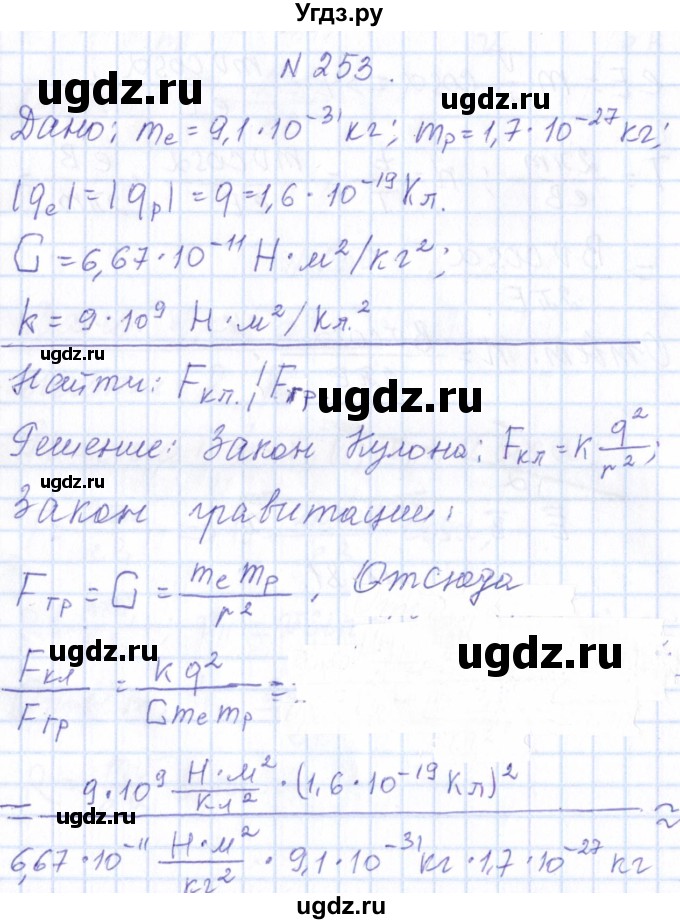 Угдз.ру
№ 253.
ugdz.ru
ugdz.ru
Дано: mₑ = 9,1·10⁻³¹ кг; mₚ = 1,7·10⁻²⁷ кг;
|qₑ| = |qₚ| = q = 1,6·10⁻¹⁹ Кл.
ugdz.ru
G = 6,67·10⁻¹¹ Н·м²/кг²;
k = 9·10⁹ Н·м²/Кл.²
ugdz.ru
Найти: Fкл./Fгр
ugdz.ru
Решение: Закон Кулона: Fкл = k q²/r²;
ugdz.ru
Закон гравитации:
ugdz.ru
Fгр = G = mₑmₚ/r², Отсюда
ugdz.ru
ugdz.ru
Fкл/Fгр = kq²/Gmₑmₚ =
ugdz.ru
= 9·10⁹ Н·м²/Кл² · (1,6·10⁻¹⁹ Кл)² ≈
ugdz.ru
6,67·10⁻¹¹ Н·м²/кг² · 9,1·10⁻³¹ кг · 1,7·10⁻²⁷ кг
ugdz.ru
ugdz.ru